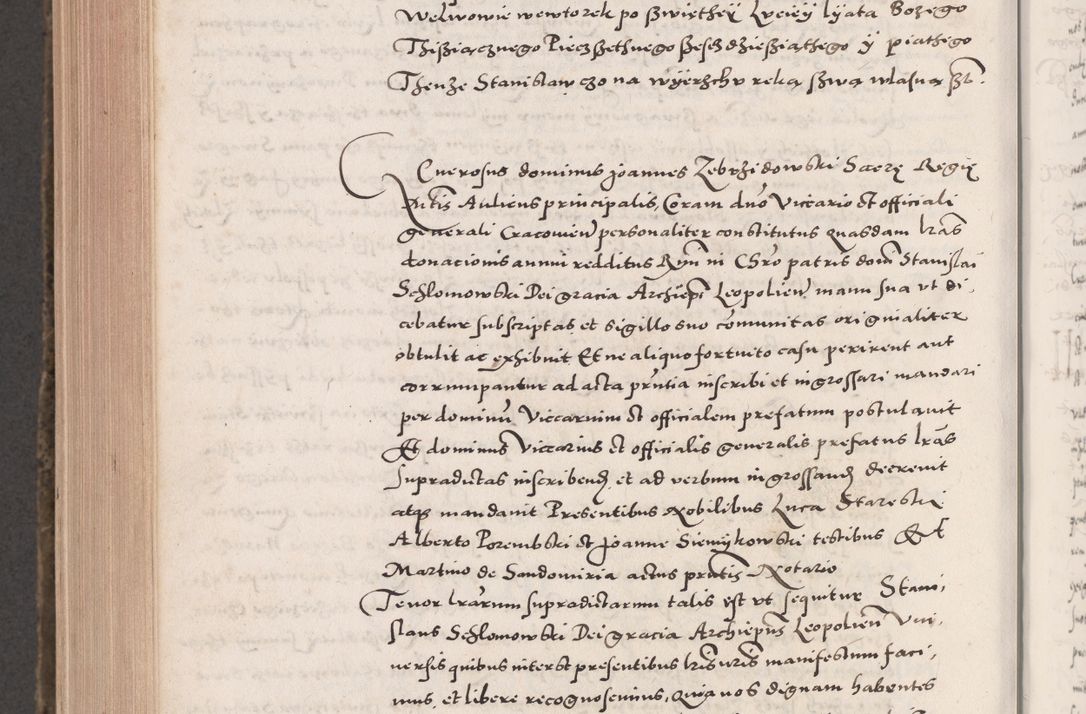 Welwowie wewtorek po szwiethey Lvciey lyata Bozego
Thisziącznego Piecz szethnego szeszdziesziąthego y piathego
Thenze Stanislaw czo na wyerzchv ręką szwą własną szt.
Generosus dominus Joannes Zebrzidowski Sacrę Regię
Mtis Aulicus principalis, Coram dno Viccario et officiali
generali Cracovien personaliter constitutus quasdam lras
donacionis annui redditus Rmi in Chro patris domi Stanislai
Schlomowski Dei gracia Archiepi Leopolien manu sua vt di,
cebatur subscriptas et sigillo suo comunitas originaliter
obtulit ac exhibuit Et ne aliquo fortuito casu perirent aut
corrumpantur ad acta pntia inscribi et ingrossari mandari
per dominu Viccarium et officialem prefatum postulavit
Et dominus Viccarius et officialis generalis prefatus lras
supradictas inscribend et ad verbum ingrossand decrevit
atq mandavit Presentibus Nobilibus Luca Stareski
Alberto Porembski et Joanne Siemykowski testibus Et
Martino de Sandomiria actus pntis Notario
Tenor lrarum supradictarum talis est vt sequitur Stani,
slaus Schlomowski Dei gracia Archiepus Leopolien Vni,
versis quibus interest presentibus lris nris manifestum faci,
mus, et libere recognoscimus, Quia nos dignam habentes